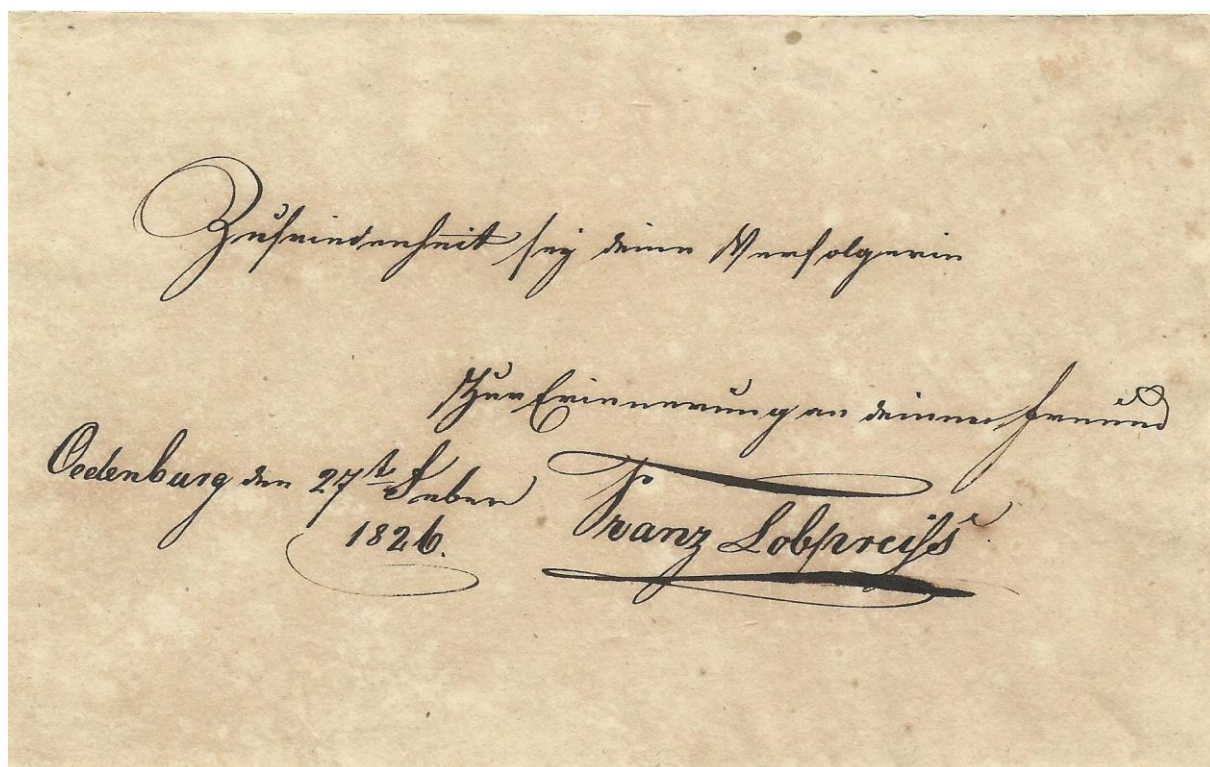 Zufriedenheit sey deine Verfolgerin
Zur Erinnerung an deinen Freund
Oedenburg den 27t Feber
1826.
Franz Lobpreiss